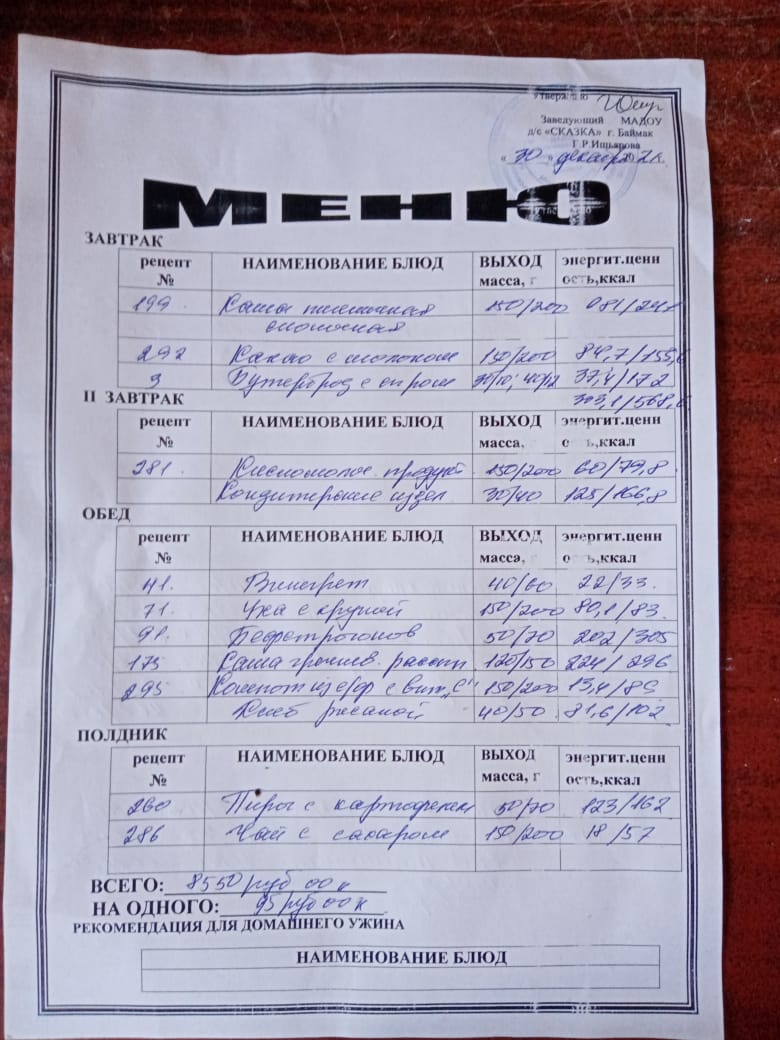 Утверждаю
Заведующий МАДОУ
д/с «СКАЗКА» г. Баймак
Г.Р.Ишьярова
« 30 » декабря
МЕНЮ
ЗАВТРАК
рецепт № НАИМЕНОВАНИЕ БЛЮД ВЫХОД масса, г энергит.ценн ость,ккал
199. Каша пшеничная 150/200
молочная
292 Какао с молоком 150/200 84,7/155,6
3 Бутерброд с сыром 30/10; 40/12 37,4/172
303,1/568,6
II ЗАВТРАК
рецепт № НАИМЕНОВАНИЕ БЛЮД ВЫХОД масса, г энергит.ценн ость,ккал
281. Кисломолоч. продукт 150/200 60/79,8.
Кондитерские издел. 30/40 125/166,8
ОБЕД
рецепт № НАИМЕНОВАНИЕ БЛЮД ВЫХОД масса, г энергит.ценн ость,ккал
41. Винегрет 40/60 22/33.
71. Уха с крупой 150/200 80,1/83.
91. Бефстроганов 50/70 202/305
173 Каша гречнев. рассып 120/150 224/296
295 Компот из с/фр с вит „С“ 150/200
Хлеб ржаной 40/50. 81,6/102
ПОЛДНИК
рецепт № НАИМЕНОВАНИЕ БЛЮД ВЫХОД масса, г энергит.ценн ость,ккал
260 Пирог с картофелем 50/70 123/162
286 Чай с сахаром 150/200 18/57
ВСЕГО: 8550 руб 00 к
НА ОДНОГО: 95 руб 00 к
РЕКОМЕНДАЦИЯ ДЛЯ ДОМАШНЕГО УЖИНА
НАИМЕНОВАНИЕ БЛЮД